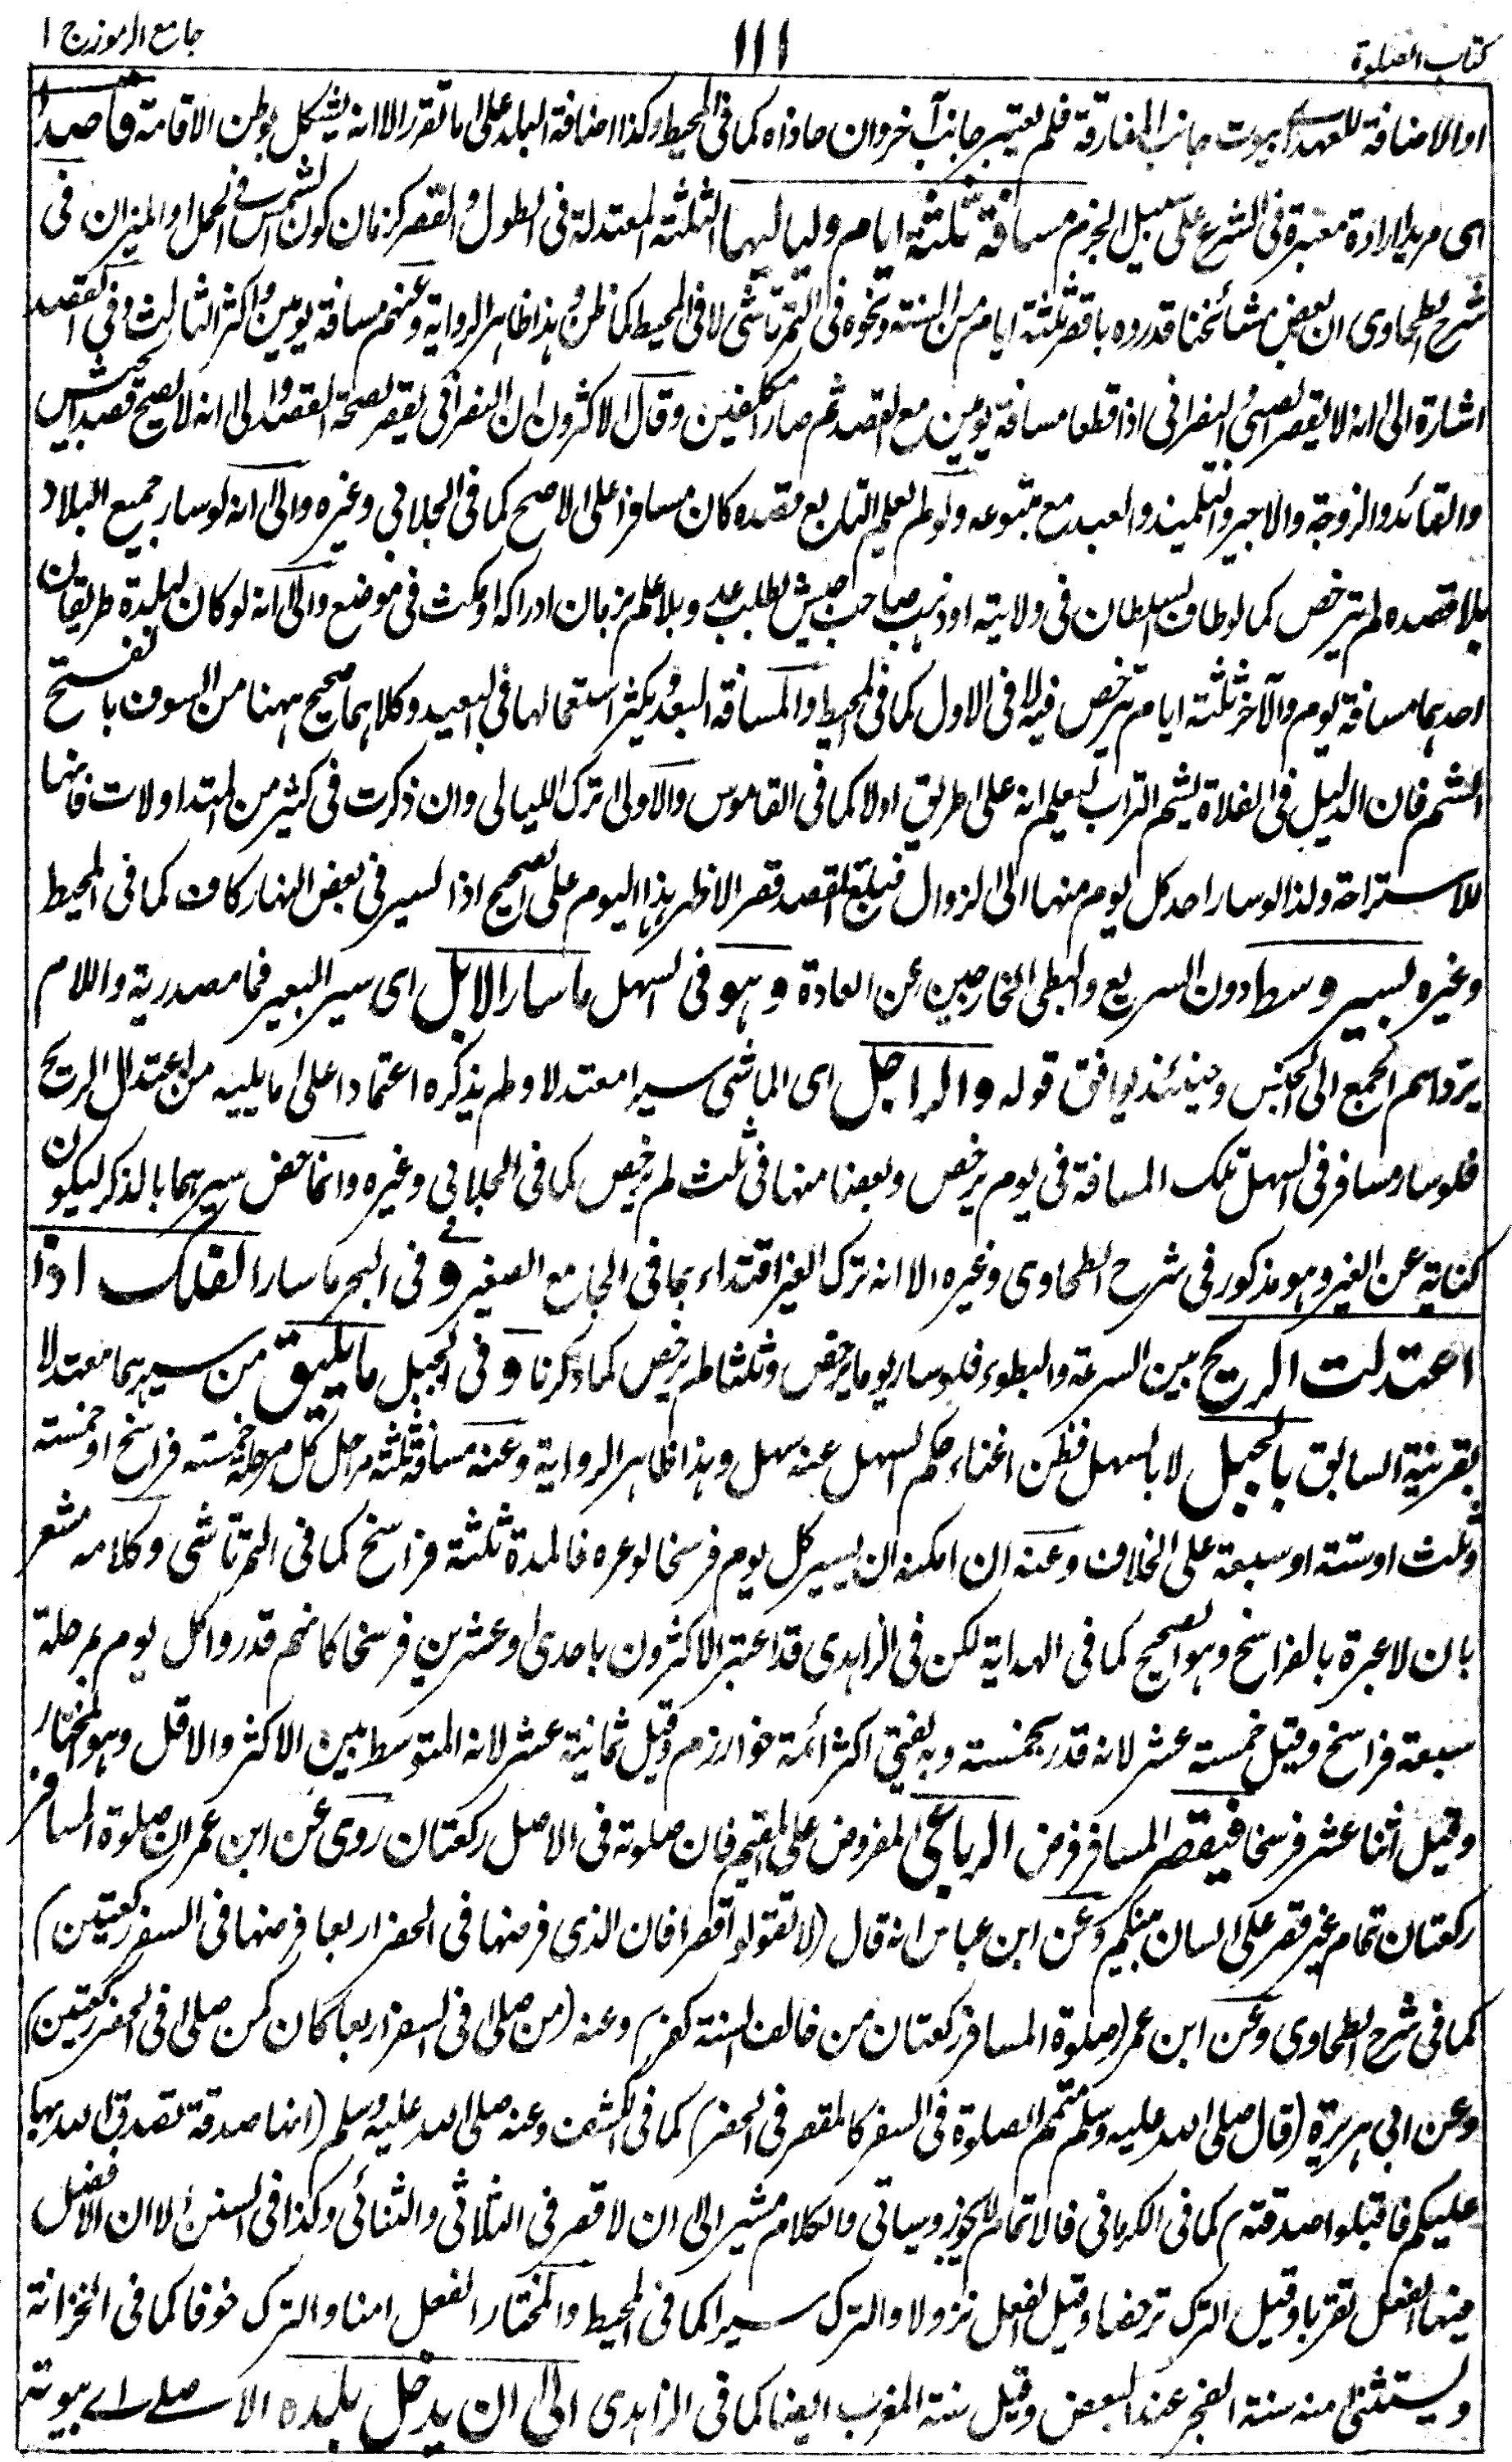 كتاب الصلوة
١١١
جامع الرموز ج ١
او الاضافة للعهد اى بيوت جانب المفارقة فلم يعتبر جانب آخر وان حاذاه كما فى المحيط وكذا اضافة البلد على ما تقرر الا انه يشكل بوطن الاقامة قاصدا
اى مريدا ارادة معتبرة فى الشرع على سبيل الجزم مسافة ثلثة ايام ولياليها الثلثة المعتدلة فى الطول والقصر كزمان كون الشمس فى الحمل او الميزان فى
شرح الطحاوى ان بعض مشائخنا قدروه باقصر ثلثة ايام من السنة ونحوه فى التمرتاشى لا فى المحيط كما ظن وهذا ظاهر الرواية وعنهم مسافة يومين واكثر الثالث وفى القصد
اشارة الى انه لا يقصر الصبى والنصرانى اذا قطعا مسافة يومين مع القصد ثم صارا مكلفين وقال الاكثرون ان النصرانى يقصر لصحة القصد والى انه لا يصح قصد الجيش
والقائد والزوجة والاجير والتلميذ والعبد مع متبوعه ولو لم يعلم التابع مقصده كان مسافرا على الاصح كما فى الجلابى وغيره والى انه لو سار جميع البلاد
بلا قصده لم يترخص كما لو طاف السلطان فى ولايته او ذهب صاحب جيش لطلب عدو بلا علم بزمان ادراكه او مكث فى موضع والى انه لو كان لبلدة طريقان
احدهما مسافة يوم والآخر ثلثة ايام يترخص فيه لا فى الاول كما فى المحيط والمسافة البعد ويكثر استعمالها فى البعيد وكلاهما صحيح ههنا من السوف بالفتح
الشم فان الدليل فى الفلاة يشم التراب ليعلم انه على طريق اولا كما فى القاموس والاولى ترك الليالى وان ذكرت فى كثير من المتداولات فانها
للاستراحة ولذا لو سار احد كل يوم منها الى الزوال فبلغ المقصد قصر الاظهر هذا اليوم على الصحيح اذا لسير فى بعض النهار كاف كما فى المحيط
وغيره بسير وسط دون السريع والبطى الخارجين عن العادة وهو فى السهل ما سار الابل اى سير البعير فما مصدرية واللام
يرد اسم الجمع الى الجنس وحينئذ يوافق قوله والراجل اى الماشى سيرا معتدلا ولم يذكره اعتمادا على ما يليه من اعتدال الريح
فلو سار مسافر فى السهل تلك المسافة فى يوم يرخص وبعضا منها فى ثلث لم يرخص كما فى الجلابى وغيره وانما خص سيرهما بالذكر ليكون
كناية عن الغير وهو مذكور فى شرح الطحاوى وغيره الا انه ترك الغير اقتداء بما فى الجامع الصغير و فى البحر ما سار الفلك اذا
اعتدلت الريح بين السرعة والبطوء فلو سار يوما يرخص وثلثا لم يرخص كما ذكرنا و فى الجبل ما يليق من سيرهما معتدلا
بقرينة السابق بالجبل لا بالسهل فظن اغناء حكم السهل عنه سهل وهذا ظاهر الرواية وعنه مسافة ثلثة مراحل كل مرحلة خمسة فراسخ او خمسة
وثلث او ستة او سبعة على الخلاف وعنه ان امكنه ان يسير كل يوم فرسخا لوعره فالمدة ثلثة فراسخ كما فى التمرتاشى وكلامه مشعر
بان لا عبرة بالفراسخ وهو الصحيح كما فى الهداية لكن فى الزاهدى قد اعتبر الاكثرون باحدى وعشرين فرسخا كانهم قدروا كل يوم بمرحلة
سبعة فراسخ وقيل خمسة عشر لانه قدر بخمسة وبه يفتى اكثر ائمة خوارزم وقيل ثمانية عشر لانه المتوسط بين الاكثر والاقل وهو المختار
وقيل اثنا عشر فرسخا فيقصر المسافر فرض الرباعى المفروض على المقيم فان صلوته فى الاصل ركعتان روى عن ابن عمر ان صلوة المسافر
ركعتان تمام غير قصر على لسان نبيكم وعن ابن عباس انه قال (لا تقولوا قصرا فان الذى فرضها فى الحضر اربعا فرضها فى السفر ركعتين)
كما فى شرح الطحاوى وعن ابن عمر (صلوة المسافر ركعتان من خالف السنة كفر) وعنه (من صلى فى السفر اربعا كان كمن صلى فى الحضر ركعتين)
وعن ابى هريرة (قال صلى الله عليه وسلم متمم الصلوة فى السفر كالمقصر فى الحضر) كما فى الكشف وعنه صلى الله عليه وسلم (انها صدقة تصدق الله بها
عليكم فاقبلوا صدقته) كما فى الكرمانى فالاتمام لا يجوز وسياتى والكلام مشير الى ان لا قصر فى الثلاثى والثنائى وكذا فى السنن الا ان الافضل
فيها الفعل تقربا وقيل الترك ترخصا وقيل الفعل نزولا والترك سيرا كما فى المحيط والمختار الفعل امنا والترك خوفا كما فى الخزانة
ويستثنى منه سنة الفجر عند البعض وقيل سنة المغرب ايضا كما فى الزاهدى الى ان يدخل بلده الاصلے اے بيوته